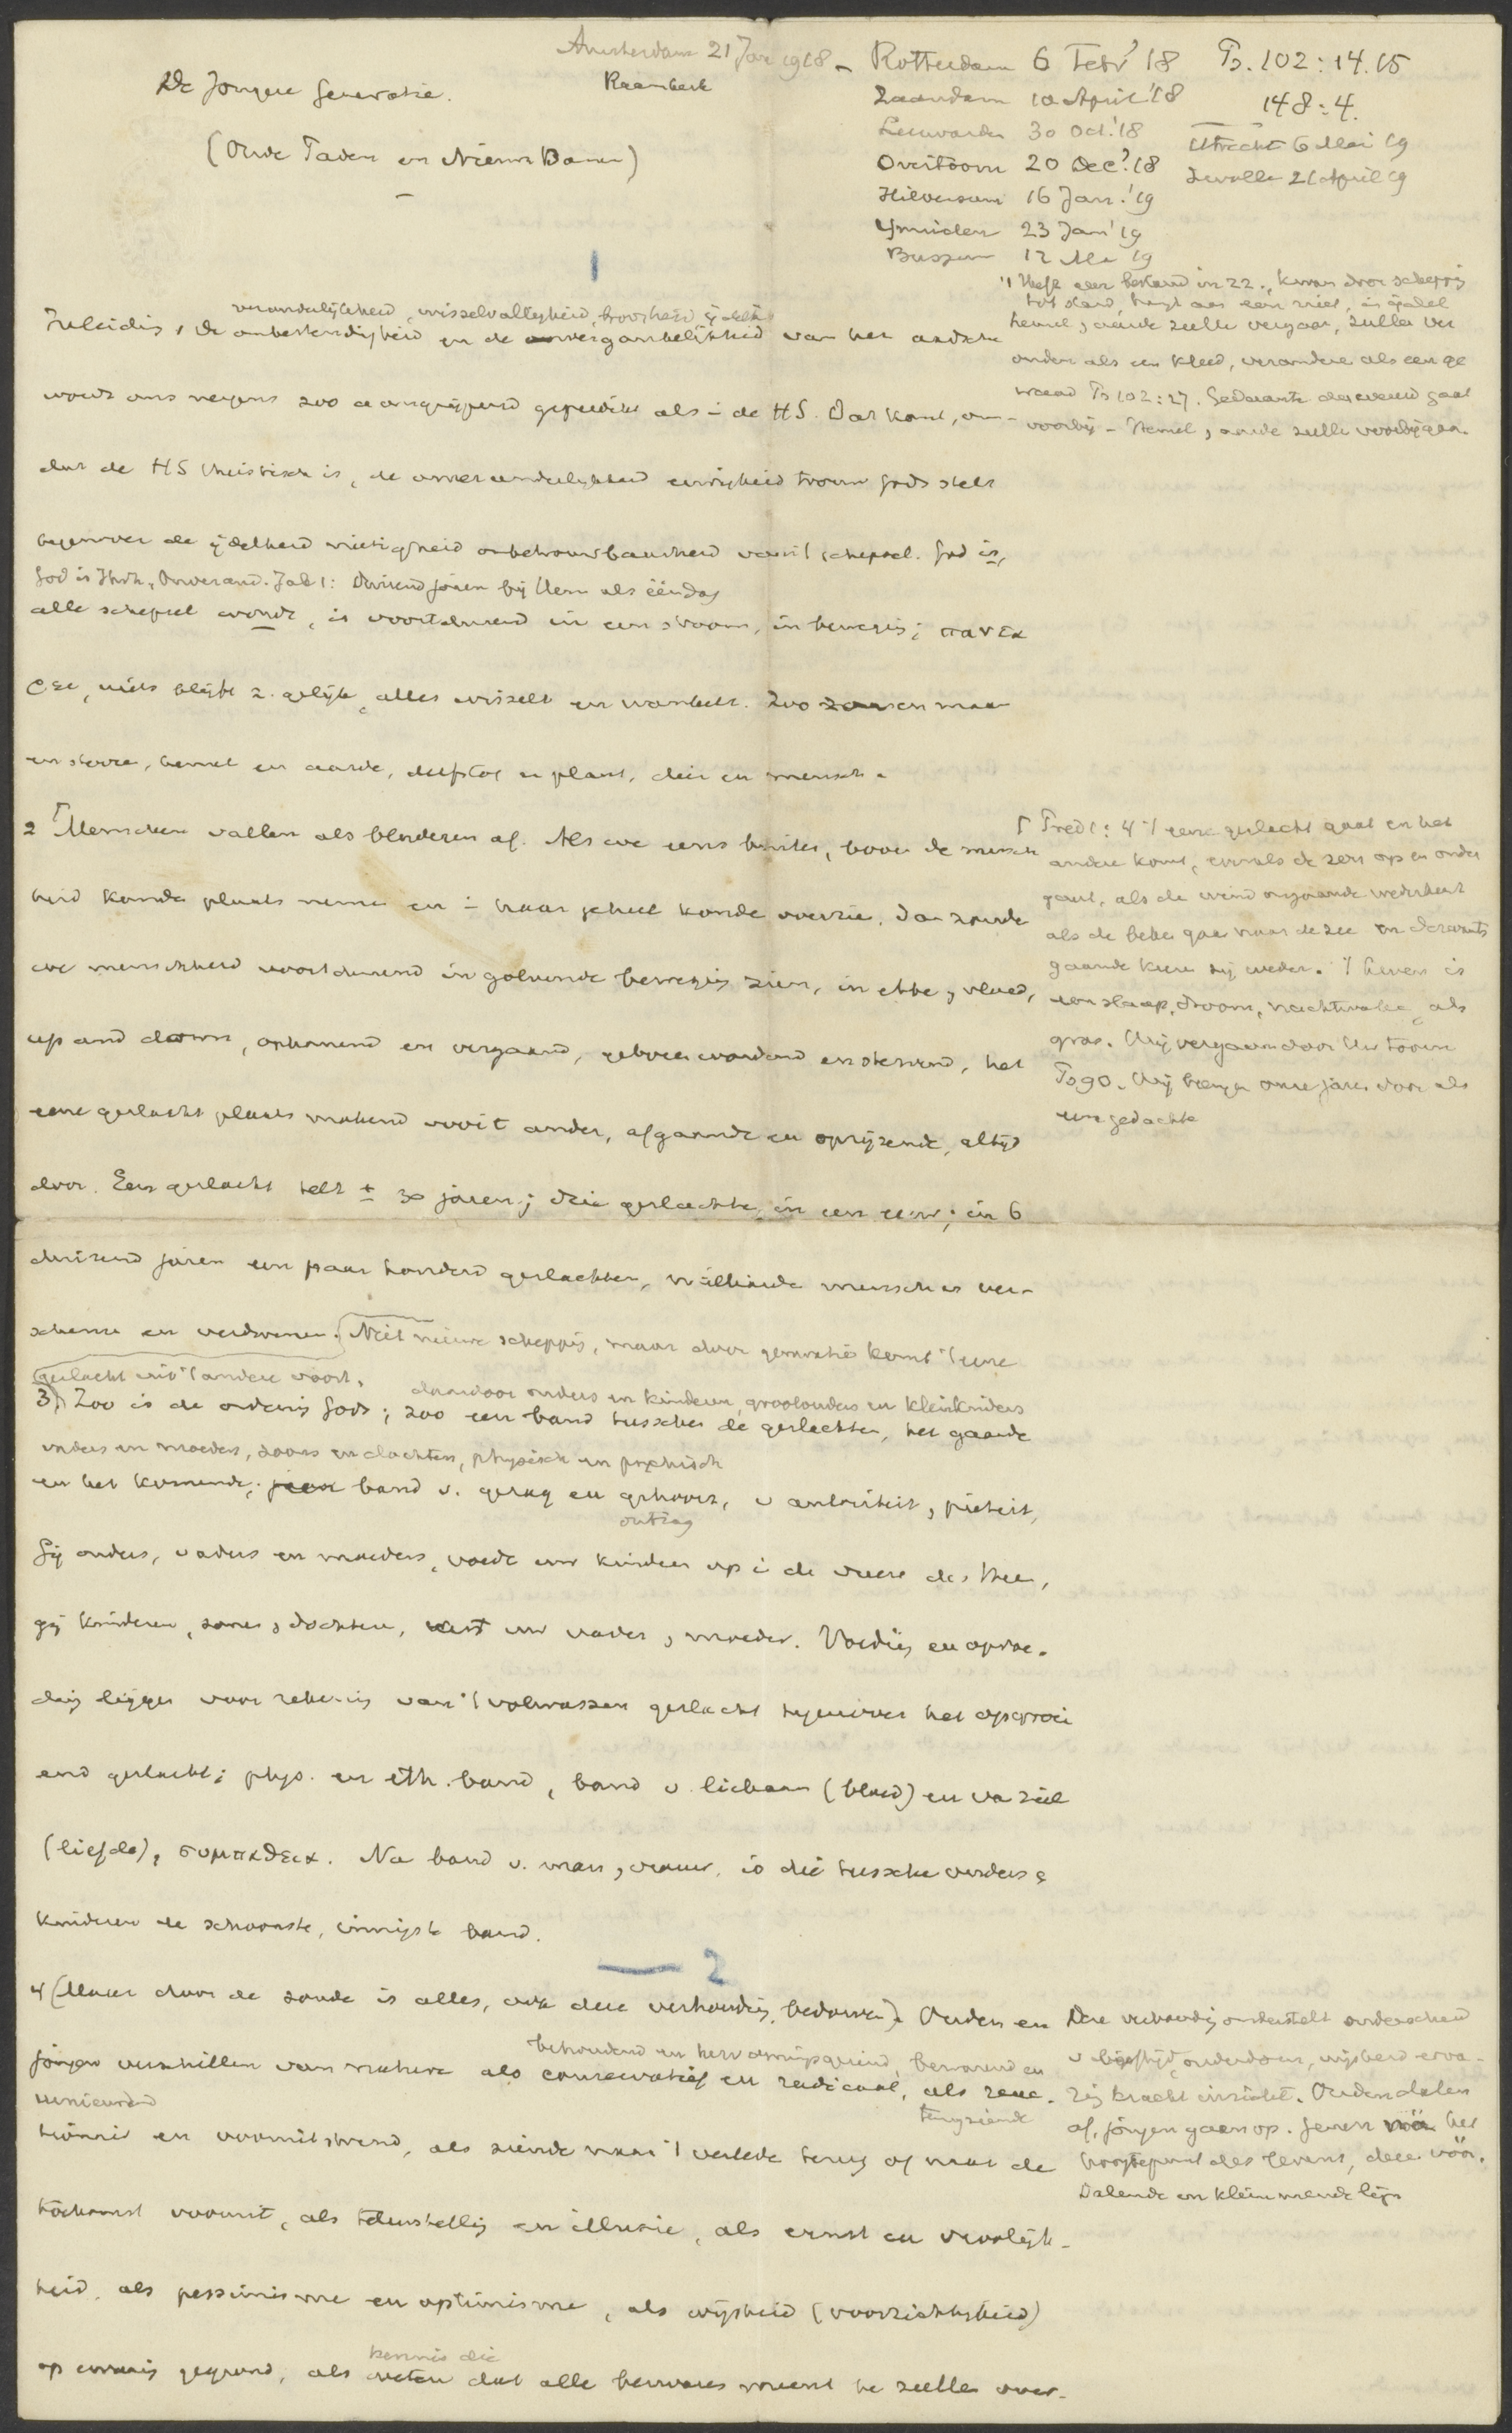 Amsterdam 21 Jan 1918 - Rotterdam 6 Febr '18 Ps. 102:14.15
De Jongere Generatie. Raamkerk
Zaandam 10 April '18 148:4.
Leeuwarden 30 Oct. '18
Utrecht 6 Mei 19
(Oude Paden en Nieuwe Banen)
Overtoom 20 Dec. '18
Zwolle 21 April 19
Hilversum 16 Jan. '19
Ymuiden 23 Jan '19
Bussum 12 Mei 19
1
veranderlijkheid, wisselvalligheid, broosheid ijdelh
Inleiding 1 De onbestendigheid en de vergankelijkheid van het aardsche
wordt ons nergens zoo aangrijpend gepredikt als i de HS. Dat komt, om-
dat de HS theistisch is, de onveranderlijkheid eeuwigheid trouw Gods stelt
tegenover de ijdelheid nietigheid onbetrouwbaarheid van 't schepsel. God is,
God is Jhvh, Onverand. Jak 1: Duizend jaren bij Hem als ééndag
alle schepsel wordt, is voortdurend in een stroom, in beweging; παντα
ρει, niets blijft z. gelijk, alles wisselt en wankelt. Zoo zon en maan
en sterren, hemel en aarde, delfstof en plant, dier en mensch.
't Heeft een bestand in zz., kwam door schepping
tot stand, hangt aan een niet, is ijdel
hemel, aarde zullen vergaan, zullen ver
ouden als een kleed, veranderen als een ge
waad Ps 102:27. Gedaante der wereld gaat
voorbij - Hemel, aarde zullen voorbijgaan.
2 Menschen vallen als bladeren af. Als we eens buiten, boven de mensch
heid konden plaats nemen en i haar geheel konden overzien, dan zouden
we menschheid voortdurend in golvende beweging zien, in ebbe, vloed,
up and down, opkomend en vergaand, geboren wordend en stervend, het
eene geslacht plaats makend voor 't ander, afgaande en oprijzende, altijd
door. Een geslacht telt ± 30 jaren; drie geslachten in een eeuw; in 6
duizend jaren een paar honderd geslachten, milliarden menschen ver-
schenen en verdwenen. Niet nieuwe schepping, maar door generatie komt 't eene
geslacht uit 't andere voort.
Pred 1:4 't eene geslacht gaat en het
andere komt, evenals de zon op en onder
gaat, als de wind omgaande wederkeert
als de beken gaan naar de zee en derwaarts
gaande keeren zij weder. 't leven is
een slaap, droom, nachtwake, als
gras. Wij vergaan door Uw toorn
Ps 90. Wij brengen onze jaren door als
een gedachte
daardoor ouders en kinderen, grootouders en kleinkinders
3) Zoo is de ordening Gods; zoo een band tusschen de geslachten, het gaande
vaders en moeders, zoons en dochters, physisch en psychisch
en het komende; band v. gezag en gehoorz, v autoriteit, pieteit,
ontzag
Gij ouders, vaders en moeders, voedt uw kinderen op i de vreeze des Heeren,
gij kinderen, zonen, dochters, eert uw vader, moeder. Voeding en opvoe-
ding liggen voor rekening van 't volwassen geslacht tegenover het opgroei
end geslacht; phys. en eth. band, band v. lichaam (bloed) en van ziel
(liefde), συμπαθεια. Na band v. man, vrouw, is die tusschen ouders &
kinderen de schoonste, innigste band.
2
4 (Maar door de zonde is alles, ook deze verhouding, bedorven). Ouden en
behoudend en hervormingsgezind, bewarend en
jongen verschillen van nature als conservatief en radicaal, als reac-
vernieuwend terugziende
tionair en vooruitstrevend, als ziende naar 't verleden terug of naar de
toekomst vooruit, als teleurstelling en illusie, als ernst en vroolijk-
heid, als pessimisme en optimisme, als wijsheid (voorzichtigheid)
kennis die
op ervaring gegrond, als weten dat alle bezwaren meent te zullen over-
Deze verhouding onderstelt onderscheid
v leeftijd, ouderdom, wijsheid erva-
ring kracht inzicht. Ouden dalen
af, jongen gaan op. Genen na het
hoogtepunt des levens, deze vóór.
Dalende en klimmende lijn